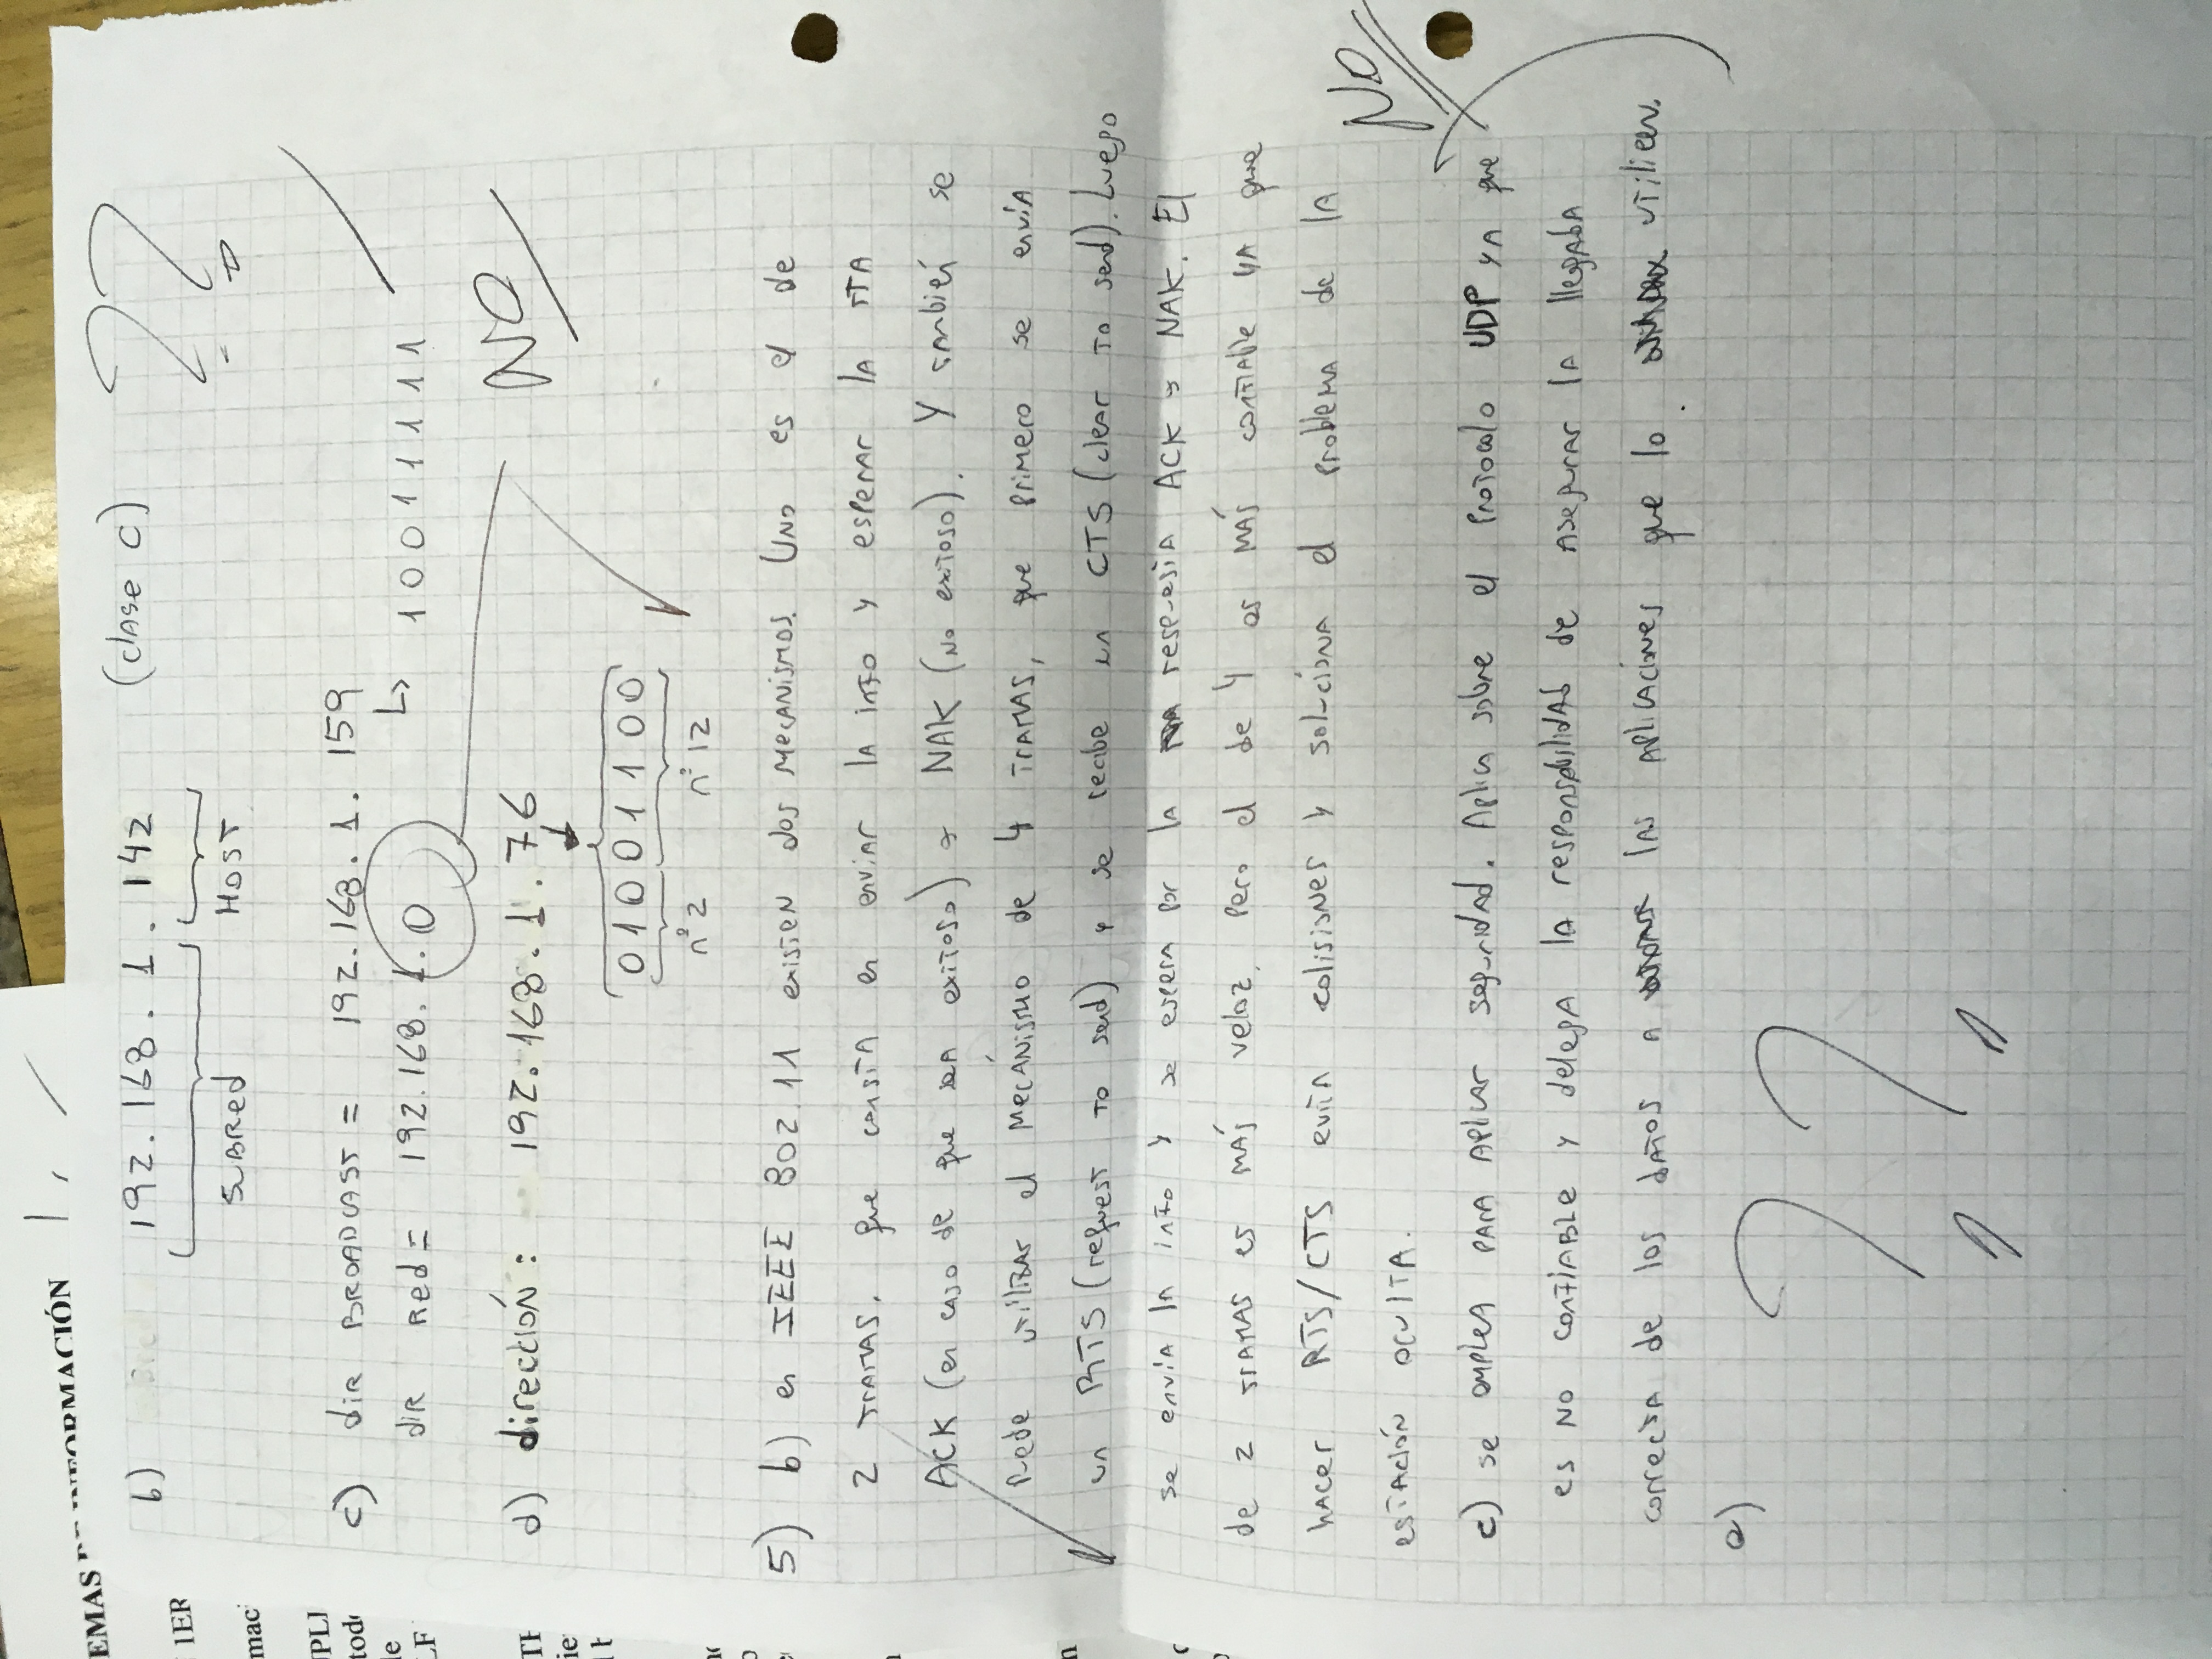 EMAS DE INFORMACIÓN
1ER
b) 192.168.1.142 (clase C)
Subred Host
c) dir BROADCAST = 192.168.1.159
↳ 10011111
dir Red = 192.168.1.0
NO
d) dirección: 192.168.1.76
01001100
n°2 n°12
5) b) en IEEE 802.11 existen dos mecanismos. Uno es el de
2 tramas, que consta en enviar la info y esperar la rta
ACK (en caso de que sea exitoso) o NAK (no exitoso). Y también se
puede utilizar el mecanismo de 4 tramas, que primero se envía
un RTS (request to send) y se recibe un CTS (clear to send). Luego
se envía la info y se espera por la respuesta ACK o NAK. El
de 2 tramas es más veloz, pero el de 4 es más confiable ya que
hacer RTS/CTS evita colisiones y soluciona el problema de la
estación oculta.
NO
c) se emplea para aplicar seguridad. Aplica sobre el protocolo UDP ya que
es no confiable y delega la responsabilidad de asegurar la llegada
correcta de los datos a las aplicaciones que lo utilicen.
e)